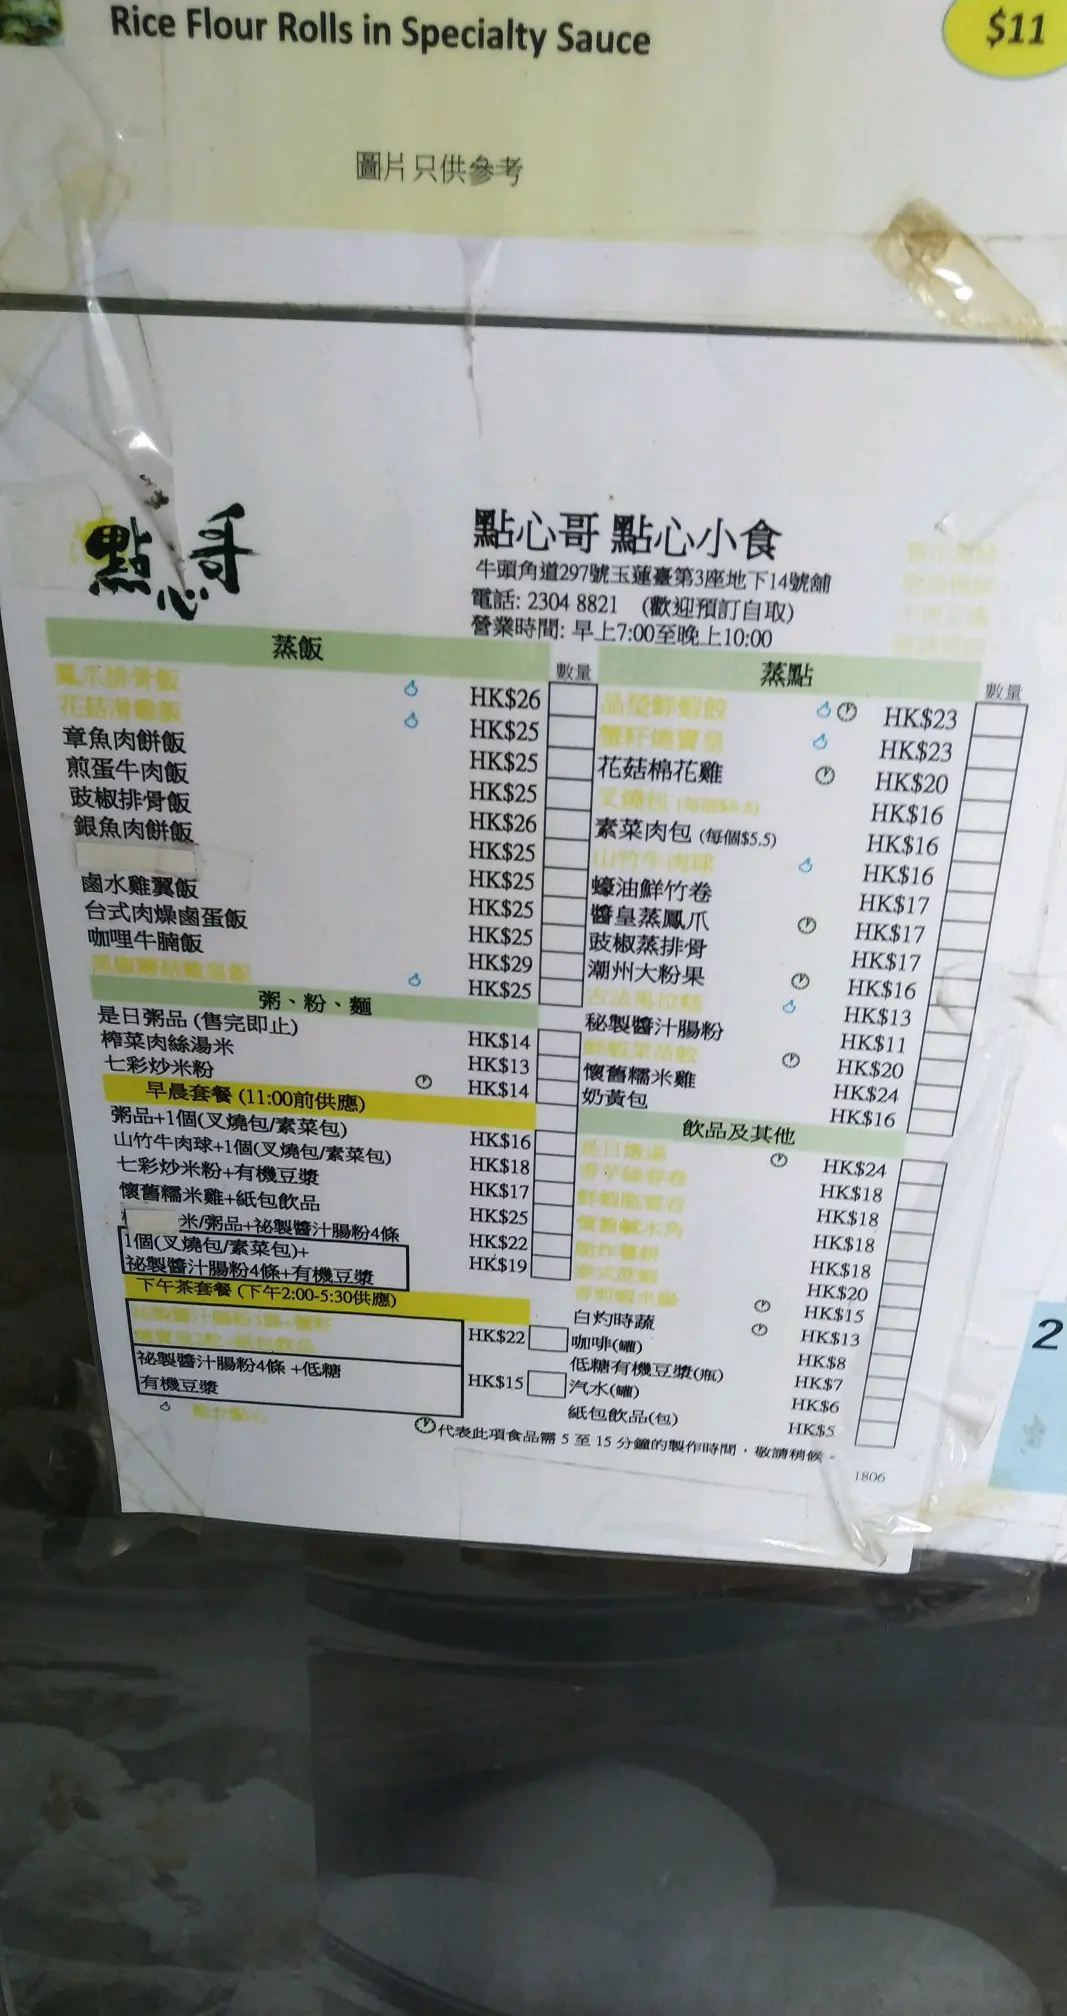 Rice Flour Rolls in Specialty Sauce
$11
圖片只供參考
點心哥
點心哥 點心小食
牛頭角道297號玉蓮臺第3座地下14號舖
電話: 2304 8821 (歡迎預訂自取)
營業時間: 早上7:00至晚上10:00
蒸飯
數量
鳳爪排骨飯 HK$26
花菇滑雞飯 HK$25
章魚肉餅飯 HK$25
煎蛋牛肉飯 HK$25
豉椒排骨飯 HK$26
銀魚肉餅飯 HK$25
HK$25
鹵水雞翼飯 HK$25
台式肉燥鹵蛋飯 HK$25
咖哩牛腩飯 HK$29
黑椒蘑菇雞扒飯 HK$25
粥、粉、麵
是日粥品 (售完即止) HK$14
榨菜肉絲湯米 HK$13
七彩炒米粉 HK$14
早晨套餐 (11:00前供應)
粥品+1個(叉燒包/素菜包) HK$16
山竹牛肉球+1個(叉燒包/素菜包) HK$18
七彩炒米粉+有機豆漿 HK$17
懷舊糯米雞+紙包飲品 HK$25
米/粥品+祕製醬汁腸粉4條 HK$22
1個(叉燒包/素菜包)+
祕製醬汁腸粉4條+有機豆漿 HK$19
下午茶套餐 (下午2:00-5:30供應)
HK$22
祕製醬汁腸粉4條 +低糖
有機豆漿 HK$15
蒸點
數量
晶瑩鮮蝦餃 HK$23
蟹籽燒賣皇 HK$23
花菇棉花雞 HK$20
叉燒包 (每個$5.5) HK$16
素菜肉包 (每個$5.5) HK$16
山竹牛肉球 HK$16
蠔油鮮竹卷 HK$17
醬皇蒸鳳爪 HK$17
豉椒蒸排骨 HK$17
潮州大粉果 HK$16
古法馬拉糕 HK$13
秘製醬汁腸粉 HK$11
鮮蝦菜苗餃 HK$20
懷舊糯米雞 HK$24
奶黃包 HK$16
飲品及其他
是日燉湯 HK$24
HK$18
鮮蝦脆雲吞 HK$18
懷舊鹹水角 HK$18
HK$18
HK$20
HK$15
白灼時蔬 HK$13
咖啡(罐) HK$8
低糖有機豆漿(瓶) HK$7
汽水(罐) HK$6
紙包飲品(包) HK$5
代表此項食品需 5 至 15 分鐘的製作時間，敬請稍候。
1806
2